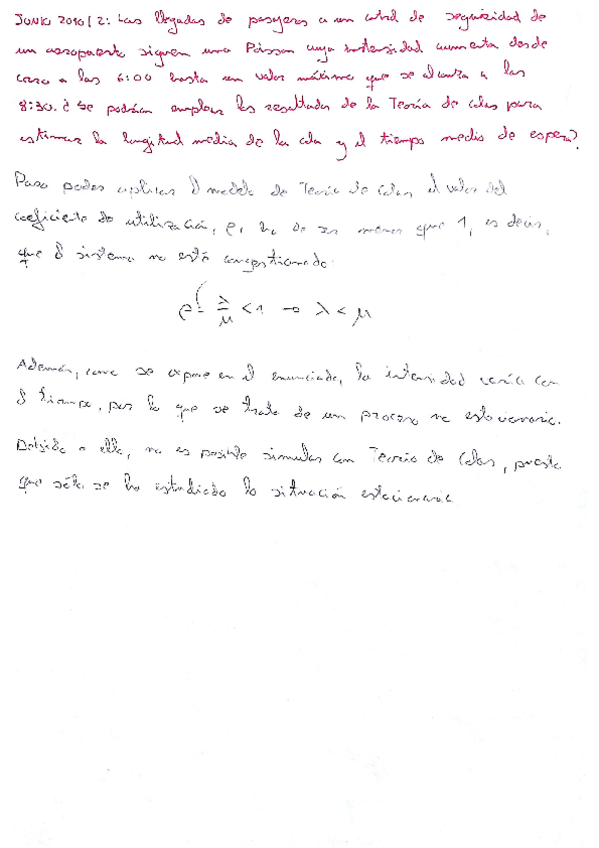 JUNIO 2010/2: Las llegadas de pasajeros a un control de seguridad de
un aeropuerto siguen una Poisson cuya intensidad aumenta desde
cero a las 6:00 hasta un valor máximo que se alcanza a las
8:30. ¿Se podrían emplear los resultados de la Teoría de colas para
estimar la longitud media de la cola y el tiempo medio de espera?
Para poder aplicar el modelo de Teoría de Colas, el valor del
coeficiente de utilización, ρ, ha de ser menor que 1, es decir,
que el sistema no está congestionado:
ρ = λ/μ < 1 → λ < μ
Además, como se expone en el enunciado, la intensidad varía con
el tiempo, por lo que se trata de un proceso no estacionario.
Debido a ello, no es posible simular con Teoría de Colas, puesto
que sólo se ha estudiado la situación estacionaria